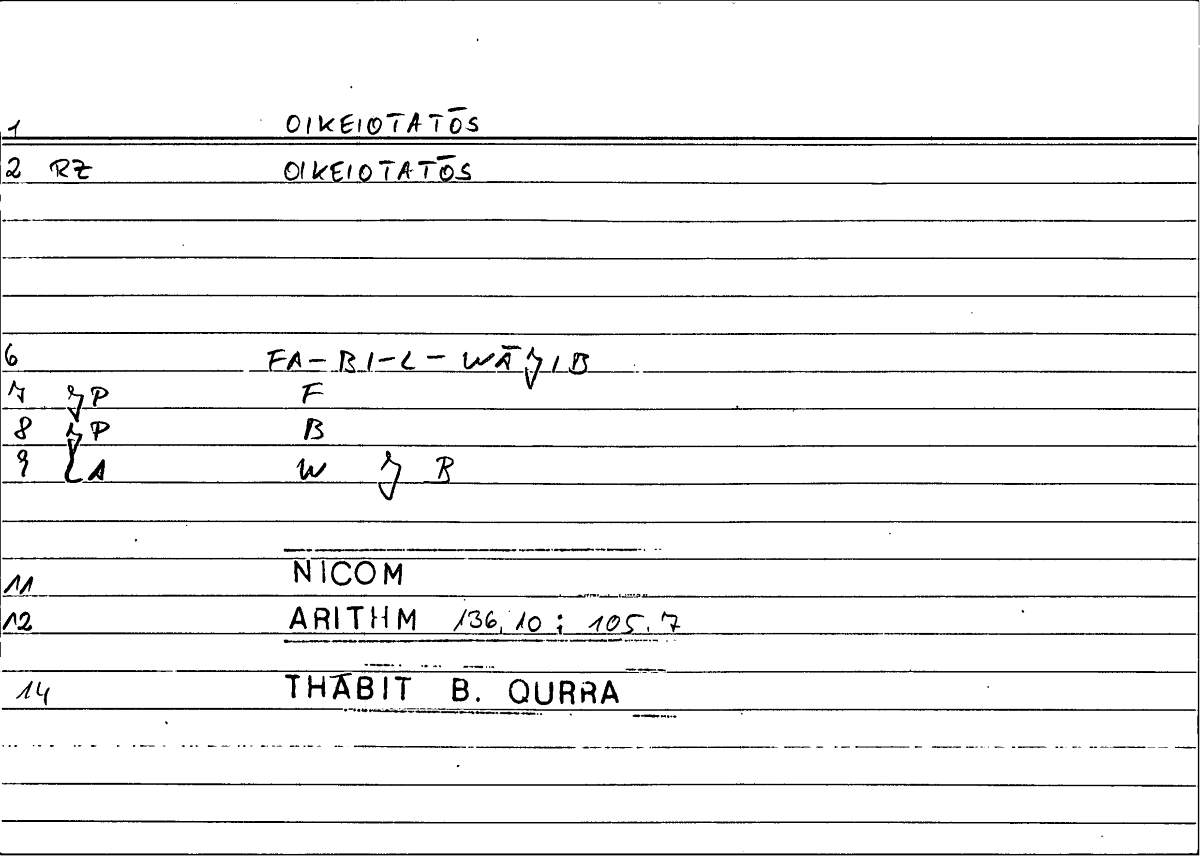 1 OIKEIOTATŌS
2 RZ OIKEIOTATŌS
6 FA-BI-L-WĀǧIB
7 ǧP F
8 ǧP B
9 LA W ǧ B
11 NICOM
12 ARITHM 136,10 ; 105.7
14 THĀBIT B. QURRA